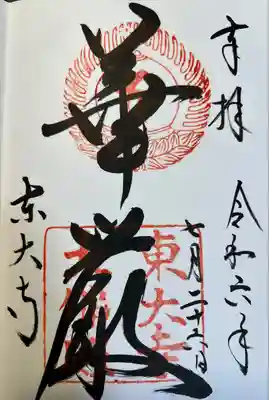 奉拝
令和六年
七月二十六日
華厳
東大寺
東大寺